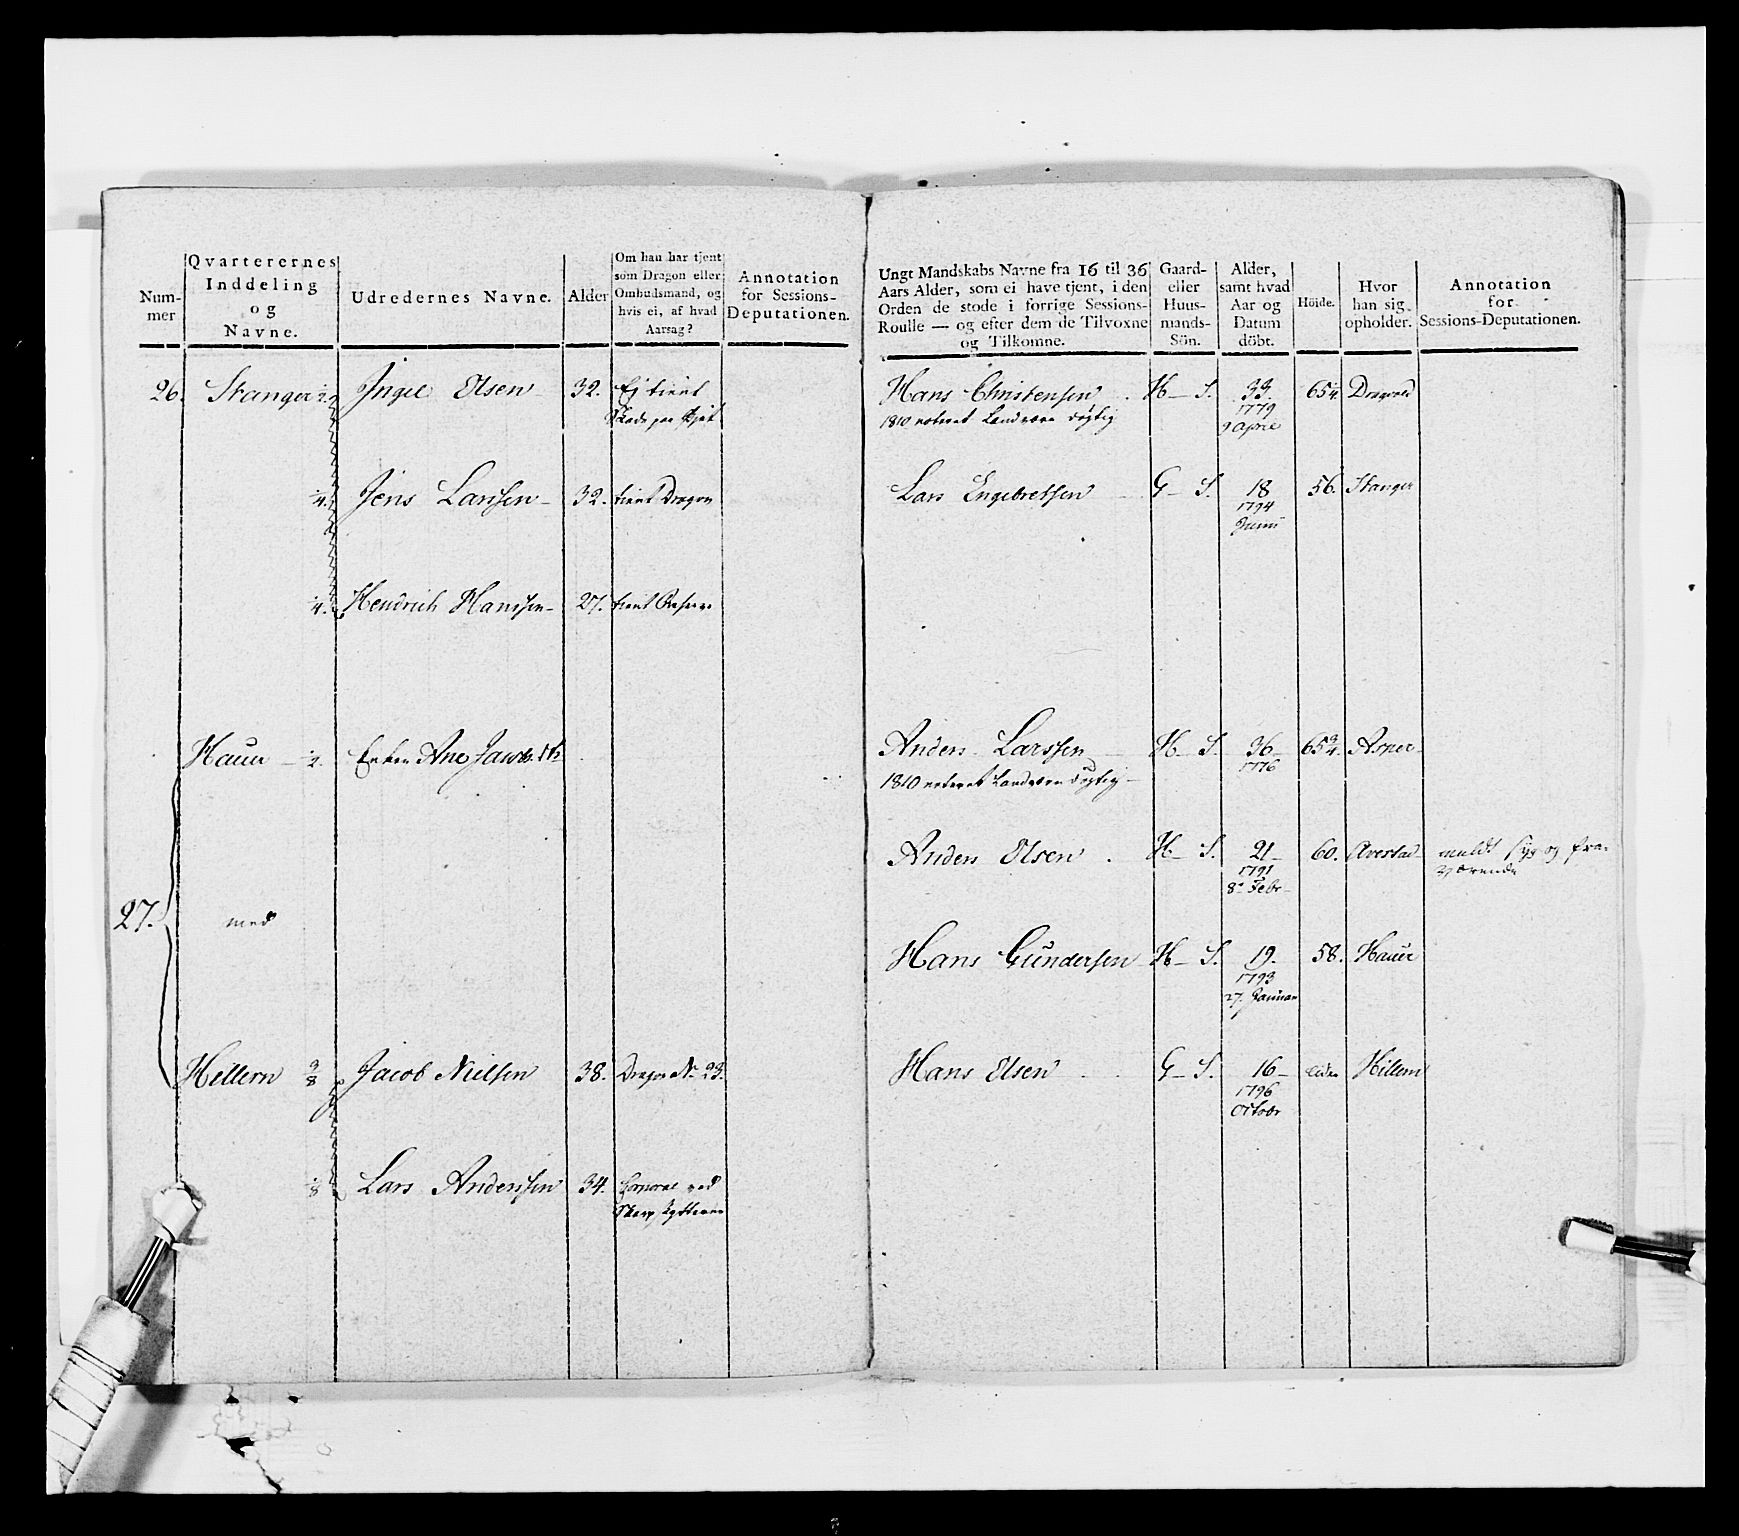 Num-
mer
Qvarterernes
Inddeling
og
Navne.
Udredernes Navne.
Alder
Om han har tjent
som Dragon eller
Ombudsmand, og
hvis ei, af hvad
Aarsag?
Annotation
for Sessions-
Deputationen.
26. Stanger ½. Ingel Olsen 32. Ej tient
Skade paa
¼. Jens Larssen - 32. tient Dragon
¼. Hendrich Hanssen - 27. tient Reserve
Hauer - ½. Enken Ane
27. med
Hellern 3/8 Jacob Nielsen 38. Dragon No 23.
1/8 Lars Anderssen 34. Corporal ved
Skarpskytterne
Ungt Mandskabs Navne fra 16 til 36
Aars Alder, som ei have tjent, i den
Orden de stode i forrige Sessions-
Roulle — og efter dem de Tilvoxne
og Tilkomne.
Gaard-
eller
Huus-
mands-
Sön.
Alder,
samt hvad
Aar og
Datum
döbt.
Höide.
Hvor
han sig
opholder.
Annotation
for
Sessions-Deputationen.
Hans Christensen H - S. 33. 65¼.
1810 noteret Landværn dygtig 1779
9 April
Lars Engebretsen G - S. 18 56. Stanger
1794
Junii
Anders Larssen H - S. 36 - 65¾. Asper
1810 noteret Landværn dygtig - 1776
Anders Olsen . H - S. 21 - 60. Avestad meldt syg og fra-
1791 værende
8de Febr -
Hans Gundersen H - S. 19. 58. Hauer
1793
27. Januar
Hans Olsen G - S. 16 - Hillern
1796
Octobr